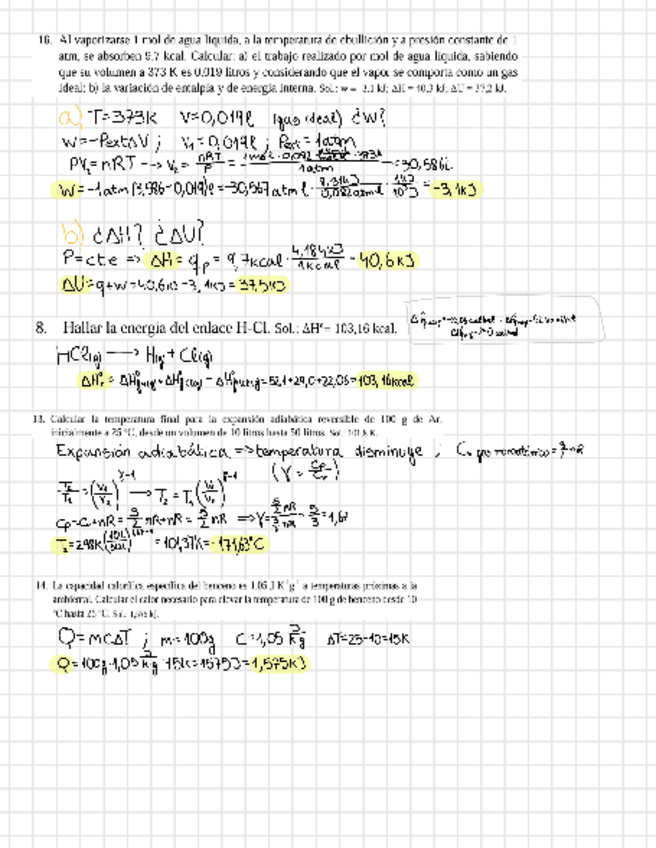 16. Al vaporizarse 1 mol de agua liquida, a la temperatura de ebullición y a presión constante de 1
atm, se absorben 9,7 kcal. Calcular: a) el trabajo realizado por mol de agua liquida, sabiendo
que su volumen a 373 K es 0,019 litros y considerando que el vapor se comporta como un gas
ideal; b) la variación de entalpía y de energía interna. Sol.: w = -3,1 kJ; ΔH = 40,3 kJ; ΔU = 37,2 kJ.
a) T=373K V=0,019l (gas ideal) ¿W?
W=-PextΔV ; V₁=0,019l ; Pext=1atm
PV₂=nRT → V₂= nRT/P = /1atm =30,586l
W=-1atm (30,586-0,019)l=-30,567atm l · 8,31KJ/0,082atml · 1KJ/10³J = -3,1KJ
b) ¿ΔH? ¿ΔU?
P=cte => ΔH=qp=9,7kcal · 4,184KJ/1kcal = 40,6KJ
ΔU=q+w=40,6KJ-3,1KJ=37,5KJ
8. Hallar la energía del enlace H-Cl. Sol.: ΔH°= 103,16 kcal.
HCl(g) → H(g) + Cl(g)
ΔH°r = ΔH°f H(g) + ΔH°f Cl(g) - ΔH°f HCl(g) = 52,1+29,0+22,06=103,16kcal
13. Calcular la temperatura final para la expansión adiabática reversible de 100 g de Ar,
inicialmente a 25 °C, desde un volumen de 10 litros hasta 50 litros. Sol.: 101,8 K.
Expansión adiabática => temperatura disminuye ; Cv gas monoatómico=3/2nR
(γ = Cp/Cv)
T₂/T₁=(V₁/V₂)^γ-1 → T₂=T₁(V₁/V₂)^γ-1
Cp=Cv+nR=3/2nR+nR=5/2nR => γ=5/2nR/3/2nR=5/3=1,67
T₂=298K(10L/50L)^1,67-1 =101,37K=-171,63°C
14. La capacidad calorífica específica del benceno es 1,05 J K⁻¹g⁻¹ a temperaturas próximas a la
ambiental. Calcular el calor necesario para elevar la temperatura de 100 g de benceno desde 10
°C hasta 25 °C. Sol.: 1,575 kJ.
Q=mcΔT ; m=100g C=1,05 J/Kg ΔT=25-10=15K
Q=100g·1,05 J/Kg ·15K=1575J=1,575KJ